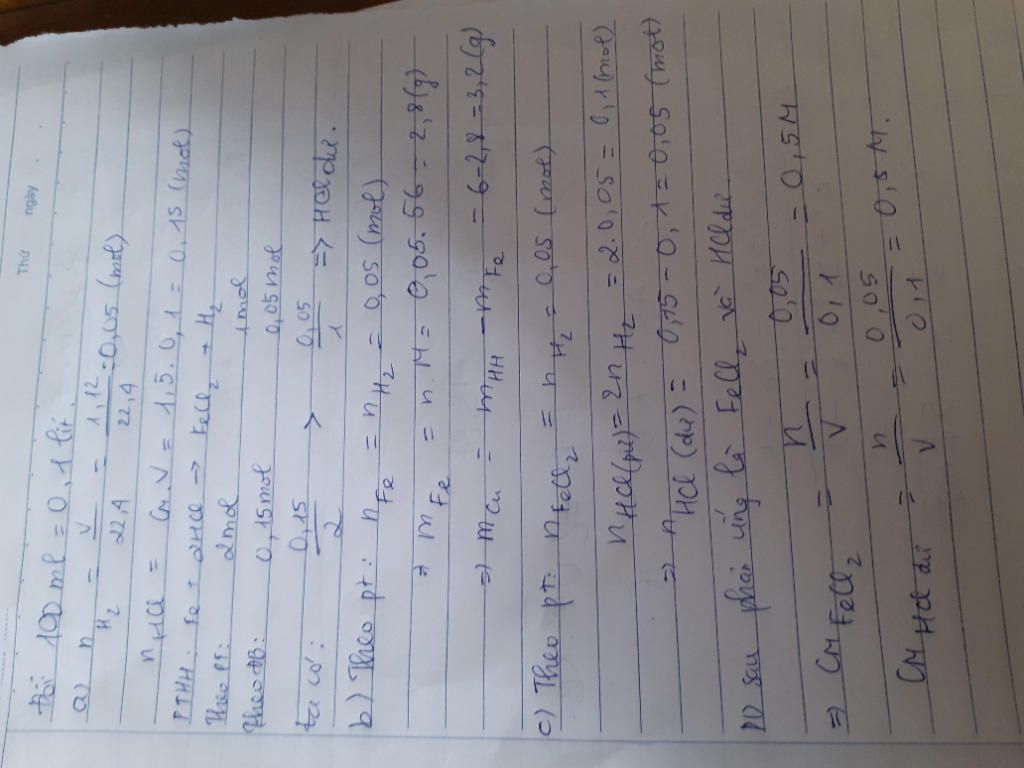 Thứ ngày
Đổi 100 ml = 0,1 lít.
a) n H₂ = V/22,4 = 1,12/22,4 = 0,05 (mol)
n HCl = CM.V = 1,5.0,1 = 0,15 (mol)
PTHH: Fe + 2HCl → FeCl₂ + H₂
Theo PT: 2mol 1mol
Theo ĐB: 0,15mol 0,05mol
ta có: 0,15/2 > 0,05/1 => HCl dư.
b) Theo pt: n Fe = n H₂ = 0,05 (mol)
=> m Fe = n.M = 0,05.56 = 2,8(g)
=> m Cu = m HH - m Fe = 6-2,8 = 3,2(g)
c) Theo pt: n FeCl₂ = n H₂ = 0,05 (mol)
n HCl(pư) = 2n H₂ = 2.0,05 = 0,1(mol)
=> n HCl (dư) = 0,15 - 0,1 = 0,05 (mol)
DD sau phải ứng là FeCl₂ và HCl dư
=> CM FeCl₂ = n/V = 0,05/0,1 = 0,5M
CM HCl dư = n/V = 0,05/0,1 = 0,5M.